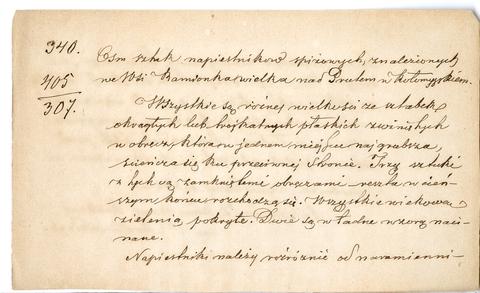 340.
Ośm sztuk napiestników spiżowych, znalezionych
405
we Wsi Kamionka wielka nad Prutem w Kołomyjskiem.
307.
Wszystkie są różnej wielkości ze sztabek
okrągłych lub trójkątnych płaskich zwiniętych
w obręcz, która w jednem miejscu najgrubsza,
ścieńcza się ku przeciwnej stronie. Trzy sztuki
z tych są zamkniętemi obręczami reszta w cień-
szym końcu rozchodzą się. Wszystkie wiekową
zielenią pokryte. Dwie są w ładne wzory naci-
nane.
Napiestniki należy rozróżnić od naramienni-